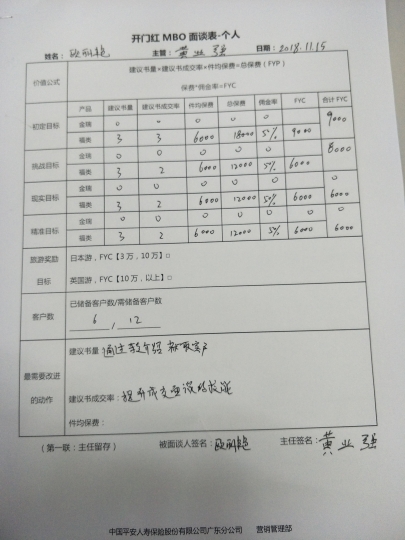 开门红 MBO 面谈表-个人
姓名： 主管：黄业强 日期：2018.11.15
价值公式 建议书量×建议书成交率×件均保费=总保费（FYP）
保费*佣金率=FYC
产品 建议书量 建议书成交率 件均保费 总保费 佣金率 FYC 合计 FYC
初定目标 金瑞 0 0 0 0 0 9000
福类 3 3 6000 18000 5% 9000
挑战目标 金瑞 0 0 0 0 0 8000
福类 3 2 6000 12000 5% 6000
现实目标 金瑞 0 0 0 0 0 0
福类 3 2 6000 12000 5% 6000 6000
精准目标 金瑞 0 0 0 0 0 0
福类 3 2 6000 12000 5% 6000 6000
旅游奖励 日本游，FYC【3 万，10 万】□
目标 英国游，FYC【10 万，以上】□
客户数 已储备客户数/需储备客户数
6 / 12
最需要改进的动作 建议书量：通过 客户
建议书成交率：提升成交面谈的
件均保费：
（第一联：主任留存） 被面谈人签名： 主任签名：黄业强
中国平安人寿保险股份有限公司广东分公司 营销管理部